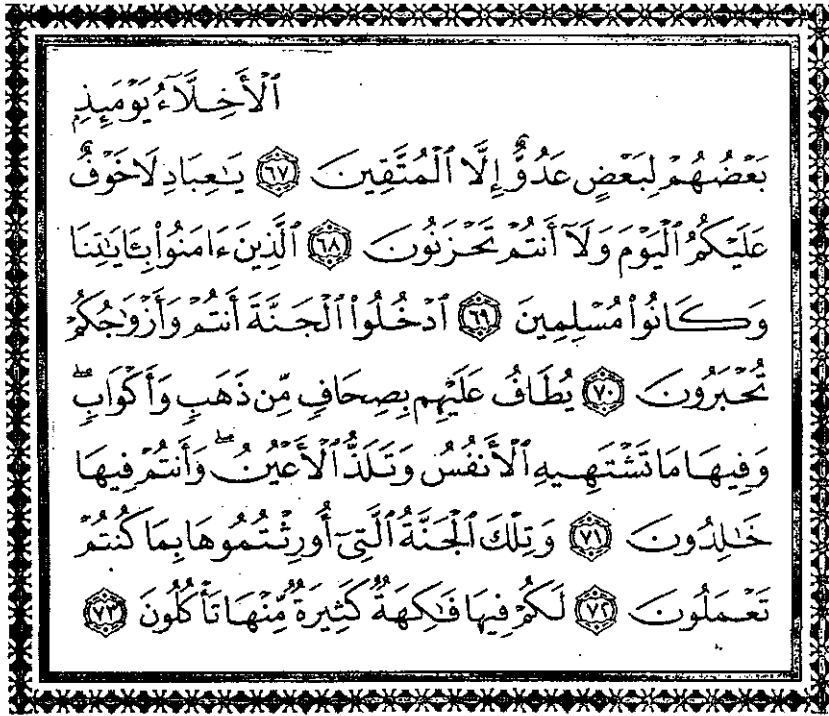 ٱلْأَخِلَّآءُ يَوْمَئِذٍۭ
بَعْضُهُمْ لِبَعْضٍ عَدُوٌّ إِلَّا ٱلْمُتَّقِينَ ٦٧ يَٰعِبَادِ لَا خَوْفٌ
عَلَيْكُمُ ٱلْيَوْمَ وَلَآ أَنتُمْ تَحْزَنُونَ ٦٨ ٱلَّذِينَ ءَامَنُوا۟ بِـَٔايَٰتِنَا
وَكَانُوا۟ مُسْلِمِينَ ٦٩ ٱدْخُلُوا۟ ٱلْجَنَّةَ أَنتُمْ وَأَزْوَٰجُكُمْ
تُحْبَرُونَ ٧٠ يُطَافُ عَلَيْهِم بِصِحَافٍ مِّن ذَهَبٍ وَأَكْوَابٍ ۖ
وَفِيهَا مَا تَشْتَهِيهِ ٱلْأَنفُسُ وَتَلَذُّ ٱلْأَعْيُنُ ۖ وَأَنتُمْ فِيهَا
خَٰلِدُونَ ٧١ وَتِلْكَ ٱلْجَنَّةُ ٱلَّتِىٓ أُورِثْتُمُوهَا بِمَا كُنتُمْ
تَعْمَلُونَ ٧٢ لَكُمْ فِيهَا فَٰكِهَةٌ كَثِيرَةٌ مِّنْهَا تَأْكُلُونَ ٧٣